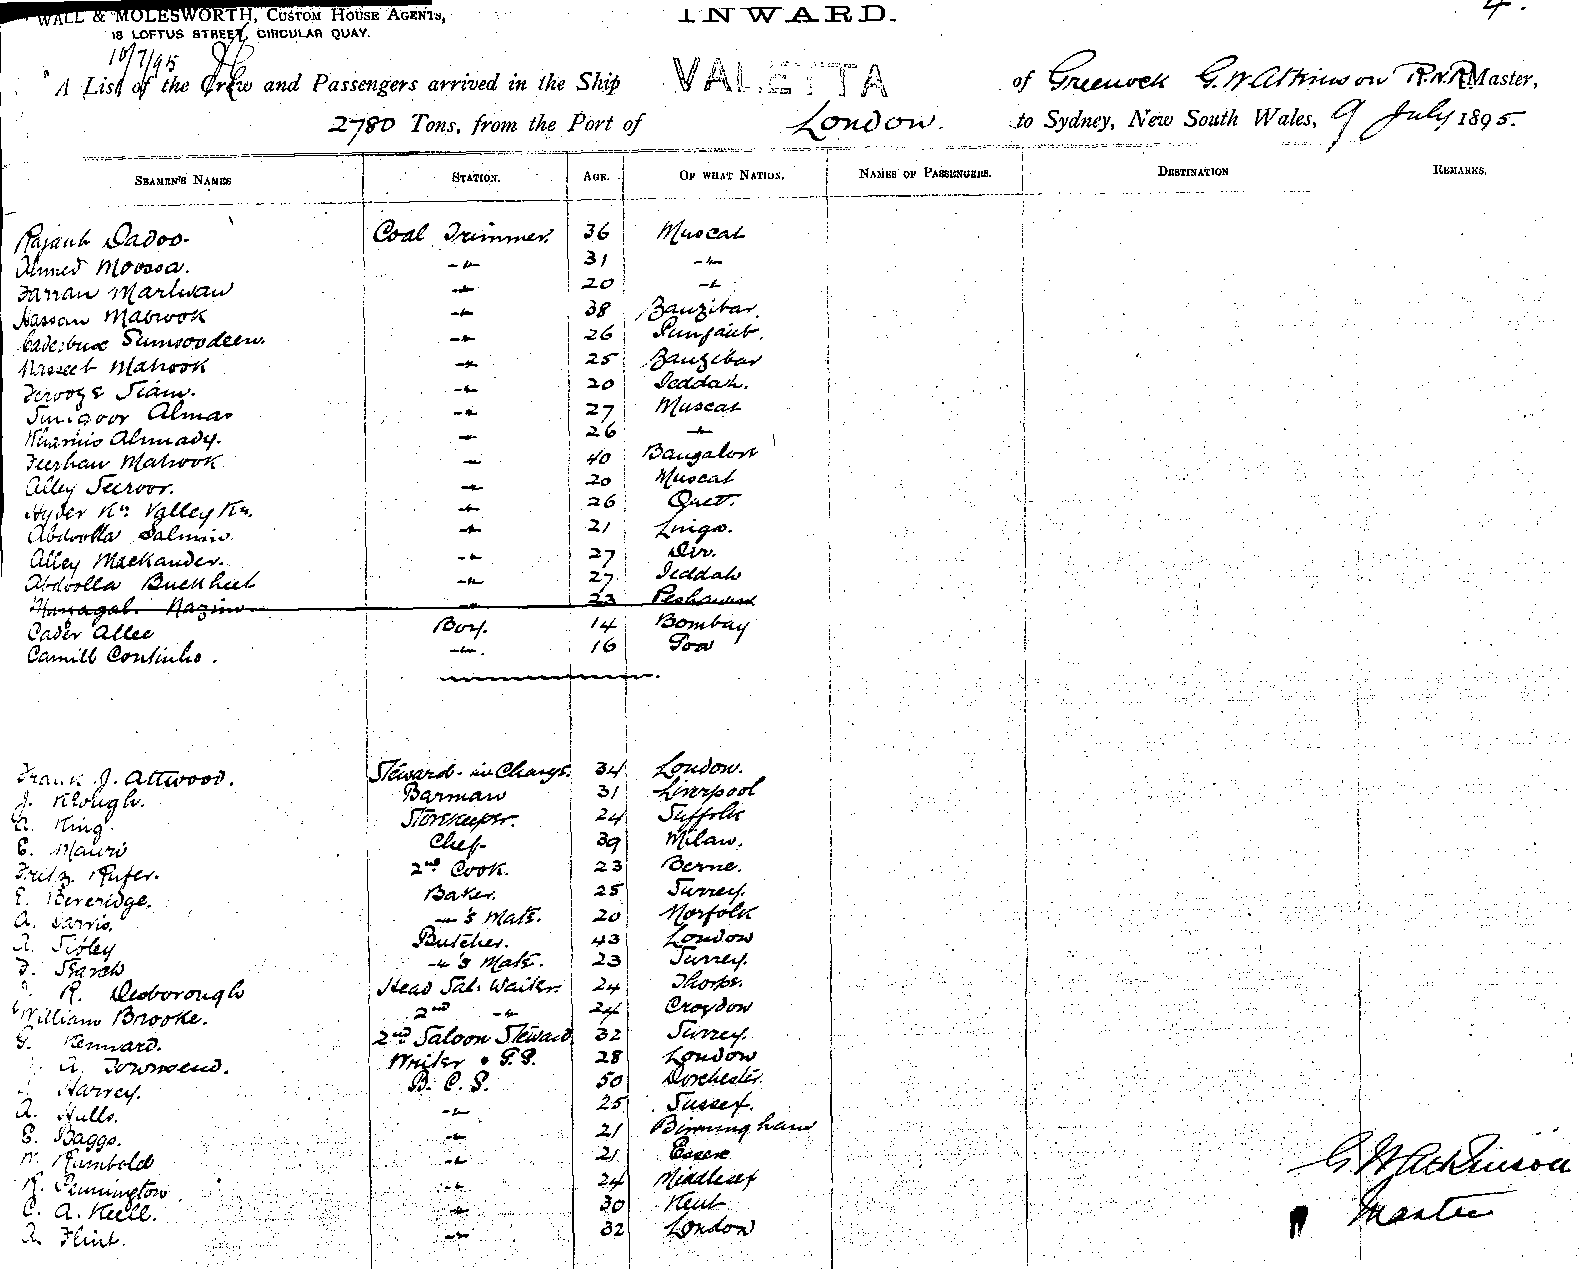 WALL & MOLESWORTH, CUSTOM HOUSE AGENTS,
18 LOFTUS STREET, CIRCULAR QUAY.
INWARD.
4.
10/7/95
A List of the Crew and Passengers arrived in the Ship VALETTA of Greenock G. W. Atkinson R.N.R. Master,
2780 Tons, from the Port of London. to Sydney, New South Wales, 9 July 1895.
SEAMEN'S NAMES STATION. AGE. OF WHAT NATION. NAMES OF PASSENGERS. DESTINATION REMARKS.
Rajaub Dadoo. Coal Trimmer. 36 Muscat
Ahmed Moossa. -"- 31 -"-
Farran Marlwan -"- 20 -"-
Hassan Mabrook -"- 38 Zanzibar.
Caderbux Sumsoodeen. -"- 26 Punjaub.
Nasseeb Mabrook -"- 25 Zanzibar
Ferooze Siam. -"- 20 Jeddah.
Sungoor Almas -"- 27 Muscat
Khamis Almady. -"- 26 -"-
Feerhan Mabrook -"- 40 Bangalore
Alley Seroor. -"- 20 Muscat
Hyder Kn. Valley Kn. -"- 26 Quet.
Abdoolla Salmin. -"- 21 Linga.
Alley Mackander. -"- 27 Dir.
Abdoolla Buckheet -"- 27 Jeddah
Nazim -"- 23 Peshawur
Cader Allee Boy. 14 Bombay
Camill Coutinho. -"- 16 Goa
Frank J. Attwood. Steward in Charge. 34 London.
J. Klough. Barman 31 Liverpool
King. Storekeeper. 24 Suffolk
E. Mauri Chef 39 Milan.
Fritz Rufer. 2nd Cook. 23 Berne.
E. Beveridge. Baker. 25 Surrey.
A. Jarvis. -"-'s Mate. 20 Norfolk
A. Sibley Butcher. 43 London
Search -"-'s Mate. 23 Surrey.
R. Desborough Head Sal. Waiter. 24 Thorpe.
William Brooke. 2nd -"- 24 Croydon
G. Kennard. 2nd Saloon Steward 32 Surrey.
A. Townsend. Writer & G.S. 28 London
Harvey. B. C. S. 50 Dorchester.
A. Hulls. -"- 25 Sussex.
E. Baggs. -"- 21 Birmingham
W. Rumbold -"- 21 Essex
R. Pennington. -"- 24 Middlesex
C. A. Keell. -"- 30 Kent
A. Flint. -"- 32 London
G W Atkinson
Master